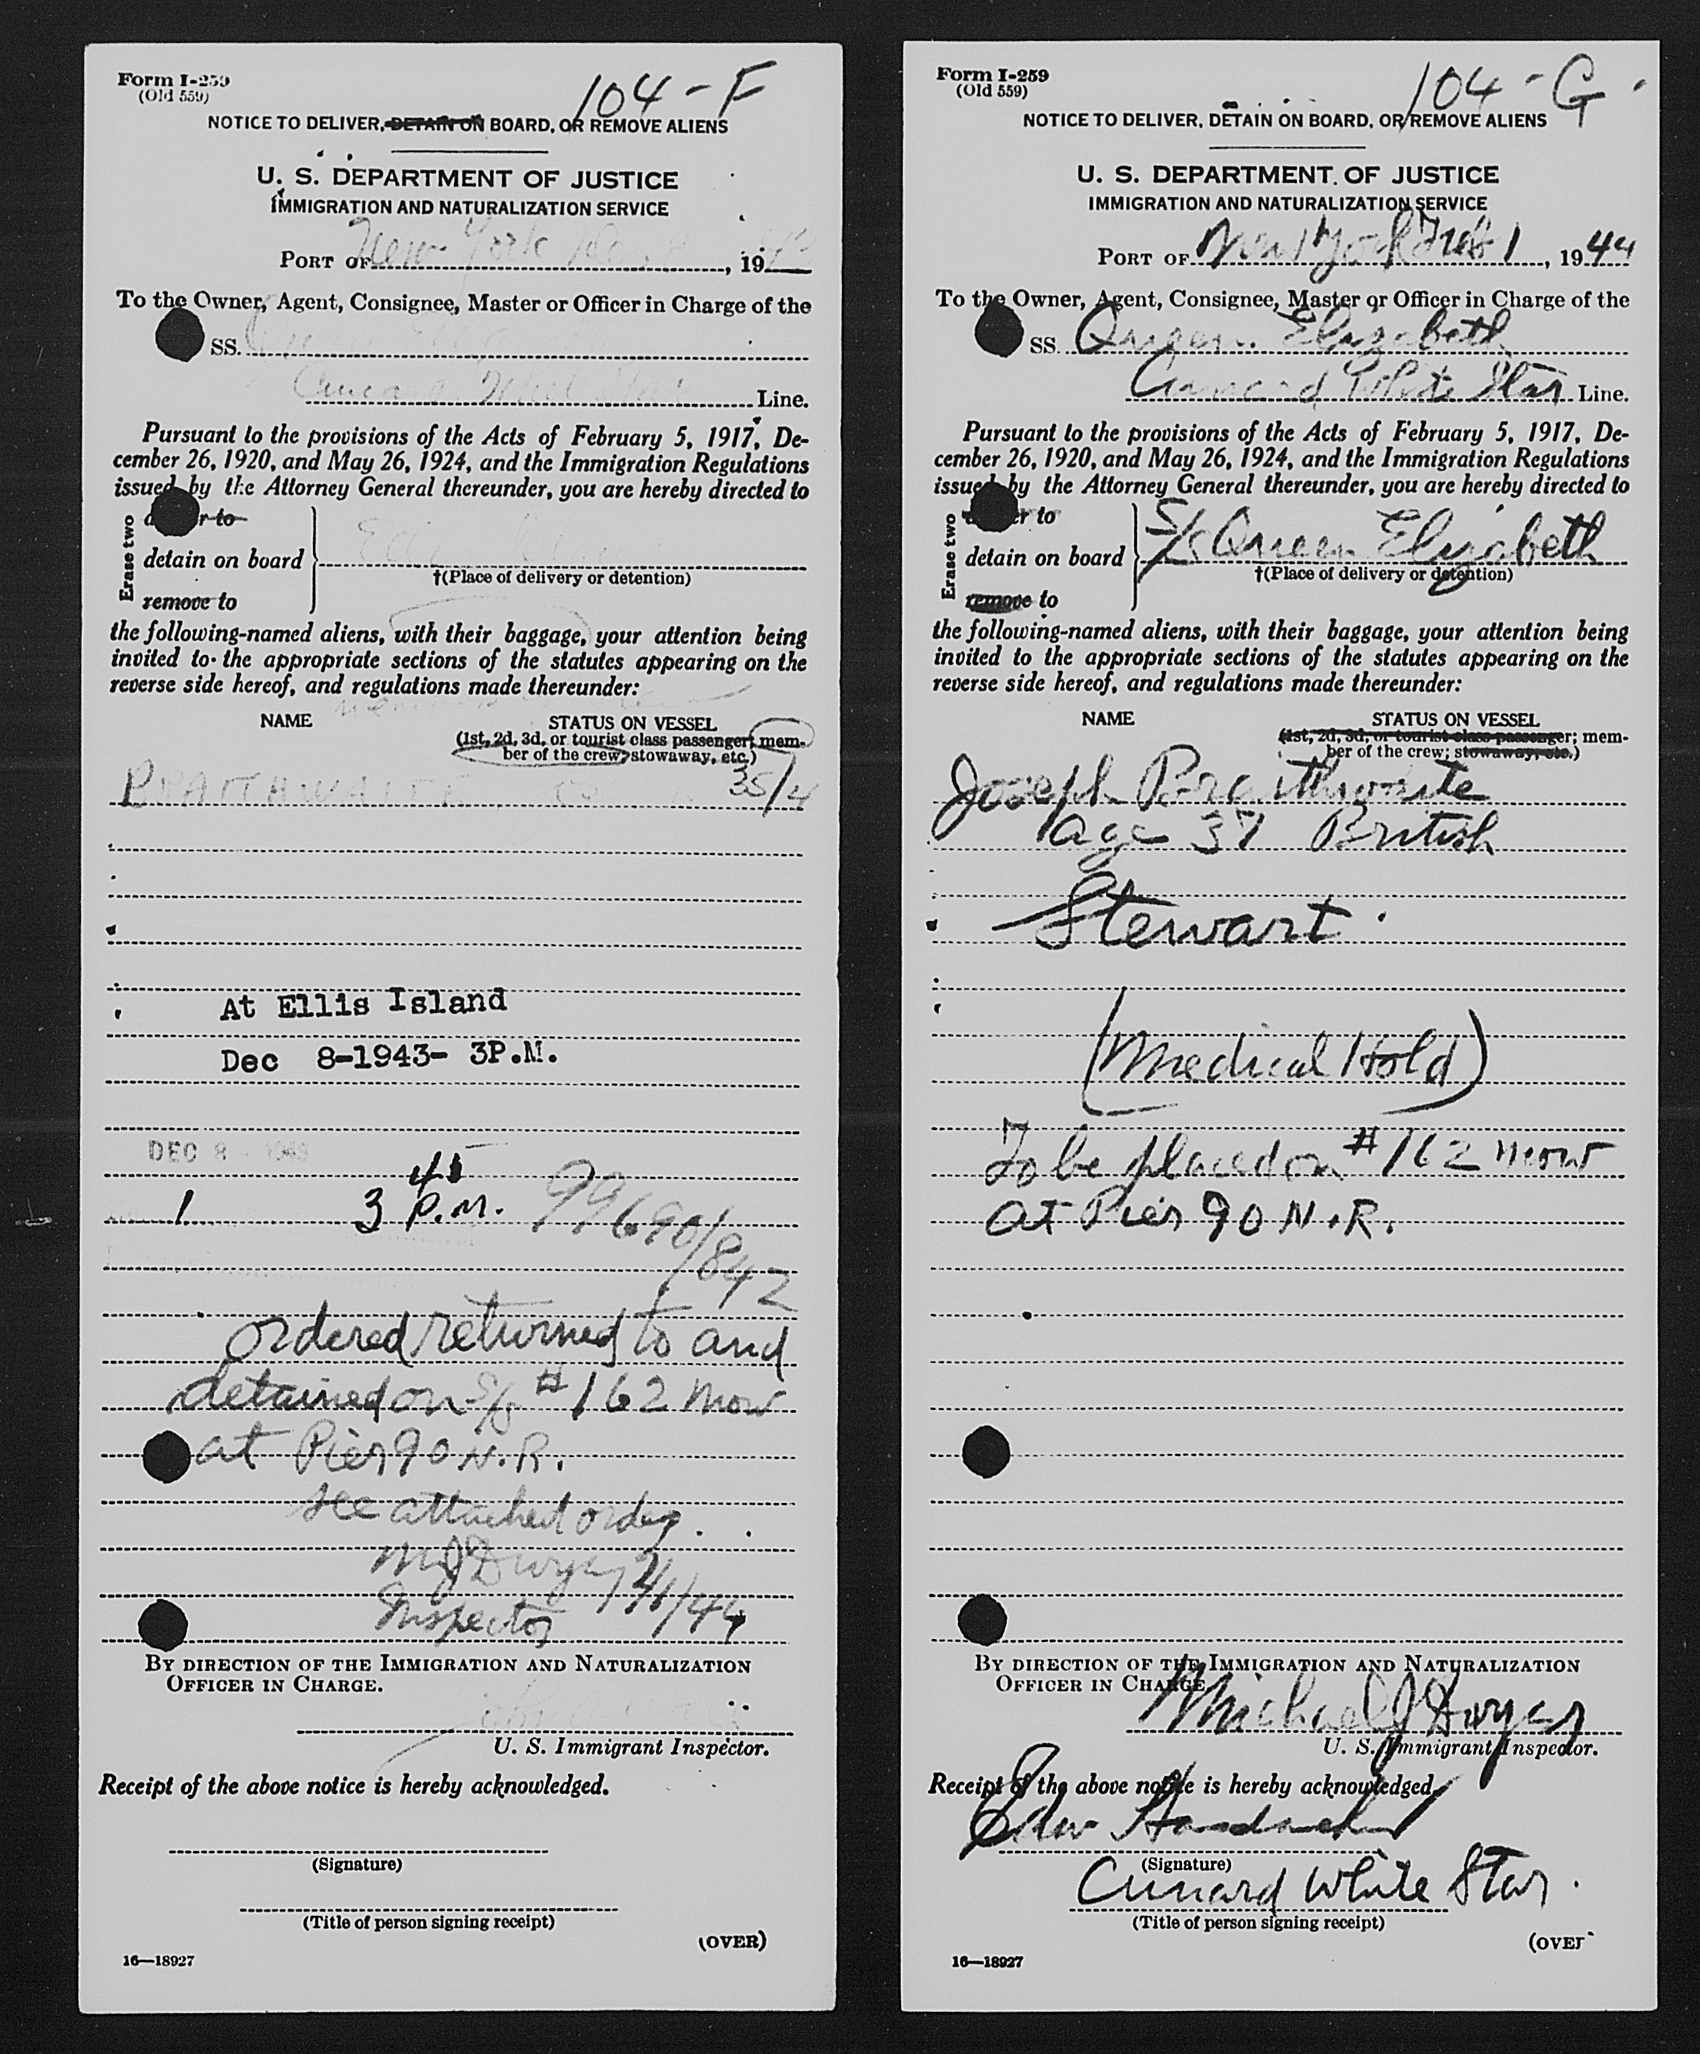 Form I-259
(Old 559)
104-F
NOTICE TO DELIVER, DETAIN ON BOARD, OR REMOVE ALIENS
U. S. DEPARTMENT OF JUSTICE
IMMIGRATION AND NATURALIZATION SERVICE
PORT OF New York , 19
To the Owner, Agent, Consignee, Master or Officer in Charge of the
SS.
Cunard White Star Line.
Pursuant to the provisions of the Acts of February 5, 1917, De-
cember 26, 1920, and May 26, 1924, and the Immigration Regulations
issued by the Attorney General thereunder, you are hereby directed to
Erase two
detain on board
†(Place of delivery or detention)
remove to
the following-named aliens, with their baggage, your attention being
invited to the appropriate sections of the statutes appearing on the
reverse side hereof, and regulations made thereunder:
NAME STATUS ON VESSEL
(1st, 2d, 3d, or tourist class passenger; mem-
ber of the crew; stowaway, etc.)
BRAITHWAITE 35/4
At Ellis Island
Dec 8-1943- 3P.M.
DEC 8 - 1943
1 3 45 P.M. 99690/842
ordered returned to and
detained on S/S #162 now
at Pier 90 N.R.
see attached order.
MJ Dwyer 2/1/44
Inspector
BY DIRECTION OF THE IMMIGRATION AND NATURALIZATION
OFFICER IN CHARGE.
U. S. Immigrant Inspector.
Receipt of the above notice is hereby acknowledged.
(Signature)
(Title of person signing receipt)
(OVER)
16—18927
Form I-259
(Old 559)
104-G
NOTICE TO DELIVER, DETAIN ON BOARD, OR REMOVE ALIENS
U. S. DEPARTMENT OF JUSTICE
IMMIGRATION AND NATURALIZATION SERVICE
PORT OF New York Feb 1, 1944
To the Owner, Agent, Consignee, Master or Officer in Charge of the
SS. Queen Elizabeth
Cunard White Star Line.
Pursuant to the provisions of the Acts of February 5, 1917, De-
cember 26, 1920, and May 26, 1924, and the Immigration Regulations
issued by the Attorney General thereunder, you are hereby directed to
Erase two
detain on board S/S Queen Elizabeth
†(Place of delivery or detention)
remove to
the following-named aliens, with their baggage, your attention being
invited to the appropriate sections of the statutes appearing on the
reverse side hereof, and regulations made thereunder:
NAME STATUS ON VESSEL
(1st, 2d, 3d, or tourist class passenger; mem-
ber of the crew; stowaway, etc.)
Joseph Braithwaite
age 37 British
Stewart
(Medical Hold)
To be placed on #162 now
at Pier 90 N.R.
BY DIRECTION OF THE IMMIGRATION AND NATURALIZATION
OFFICER IN CHARGE
Michael J Dwyer
U. S. Immigrant Inspector.
Receipt of the above notice is hereby acknowledged.
Edw
(Signature)
Cunard White Star.
(Title of person signing receipt)
(OVER
16—18927